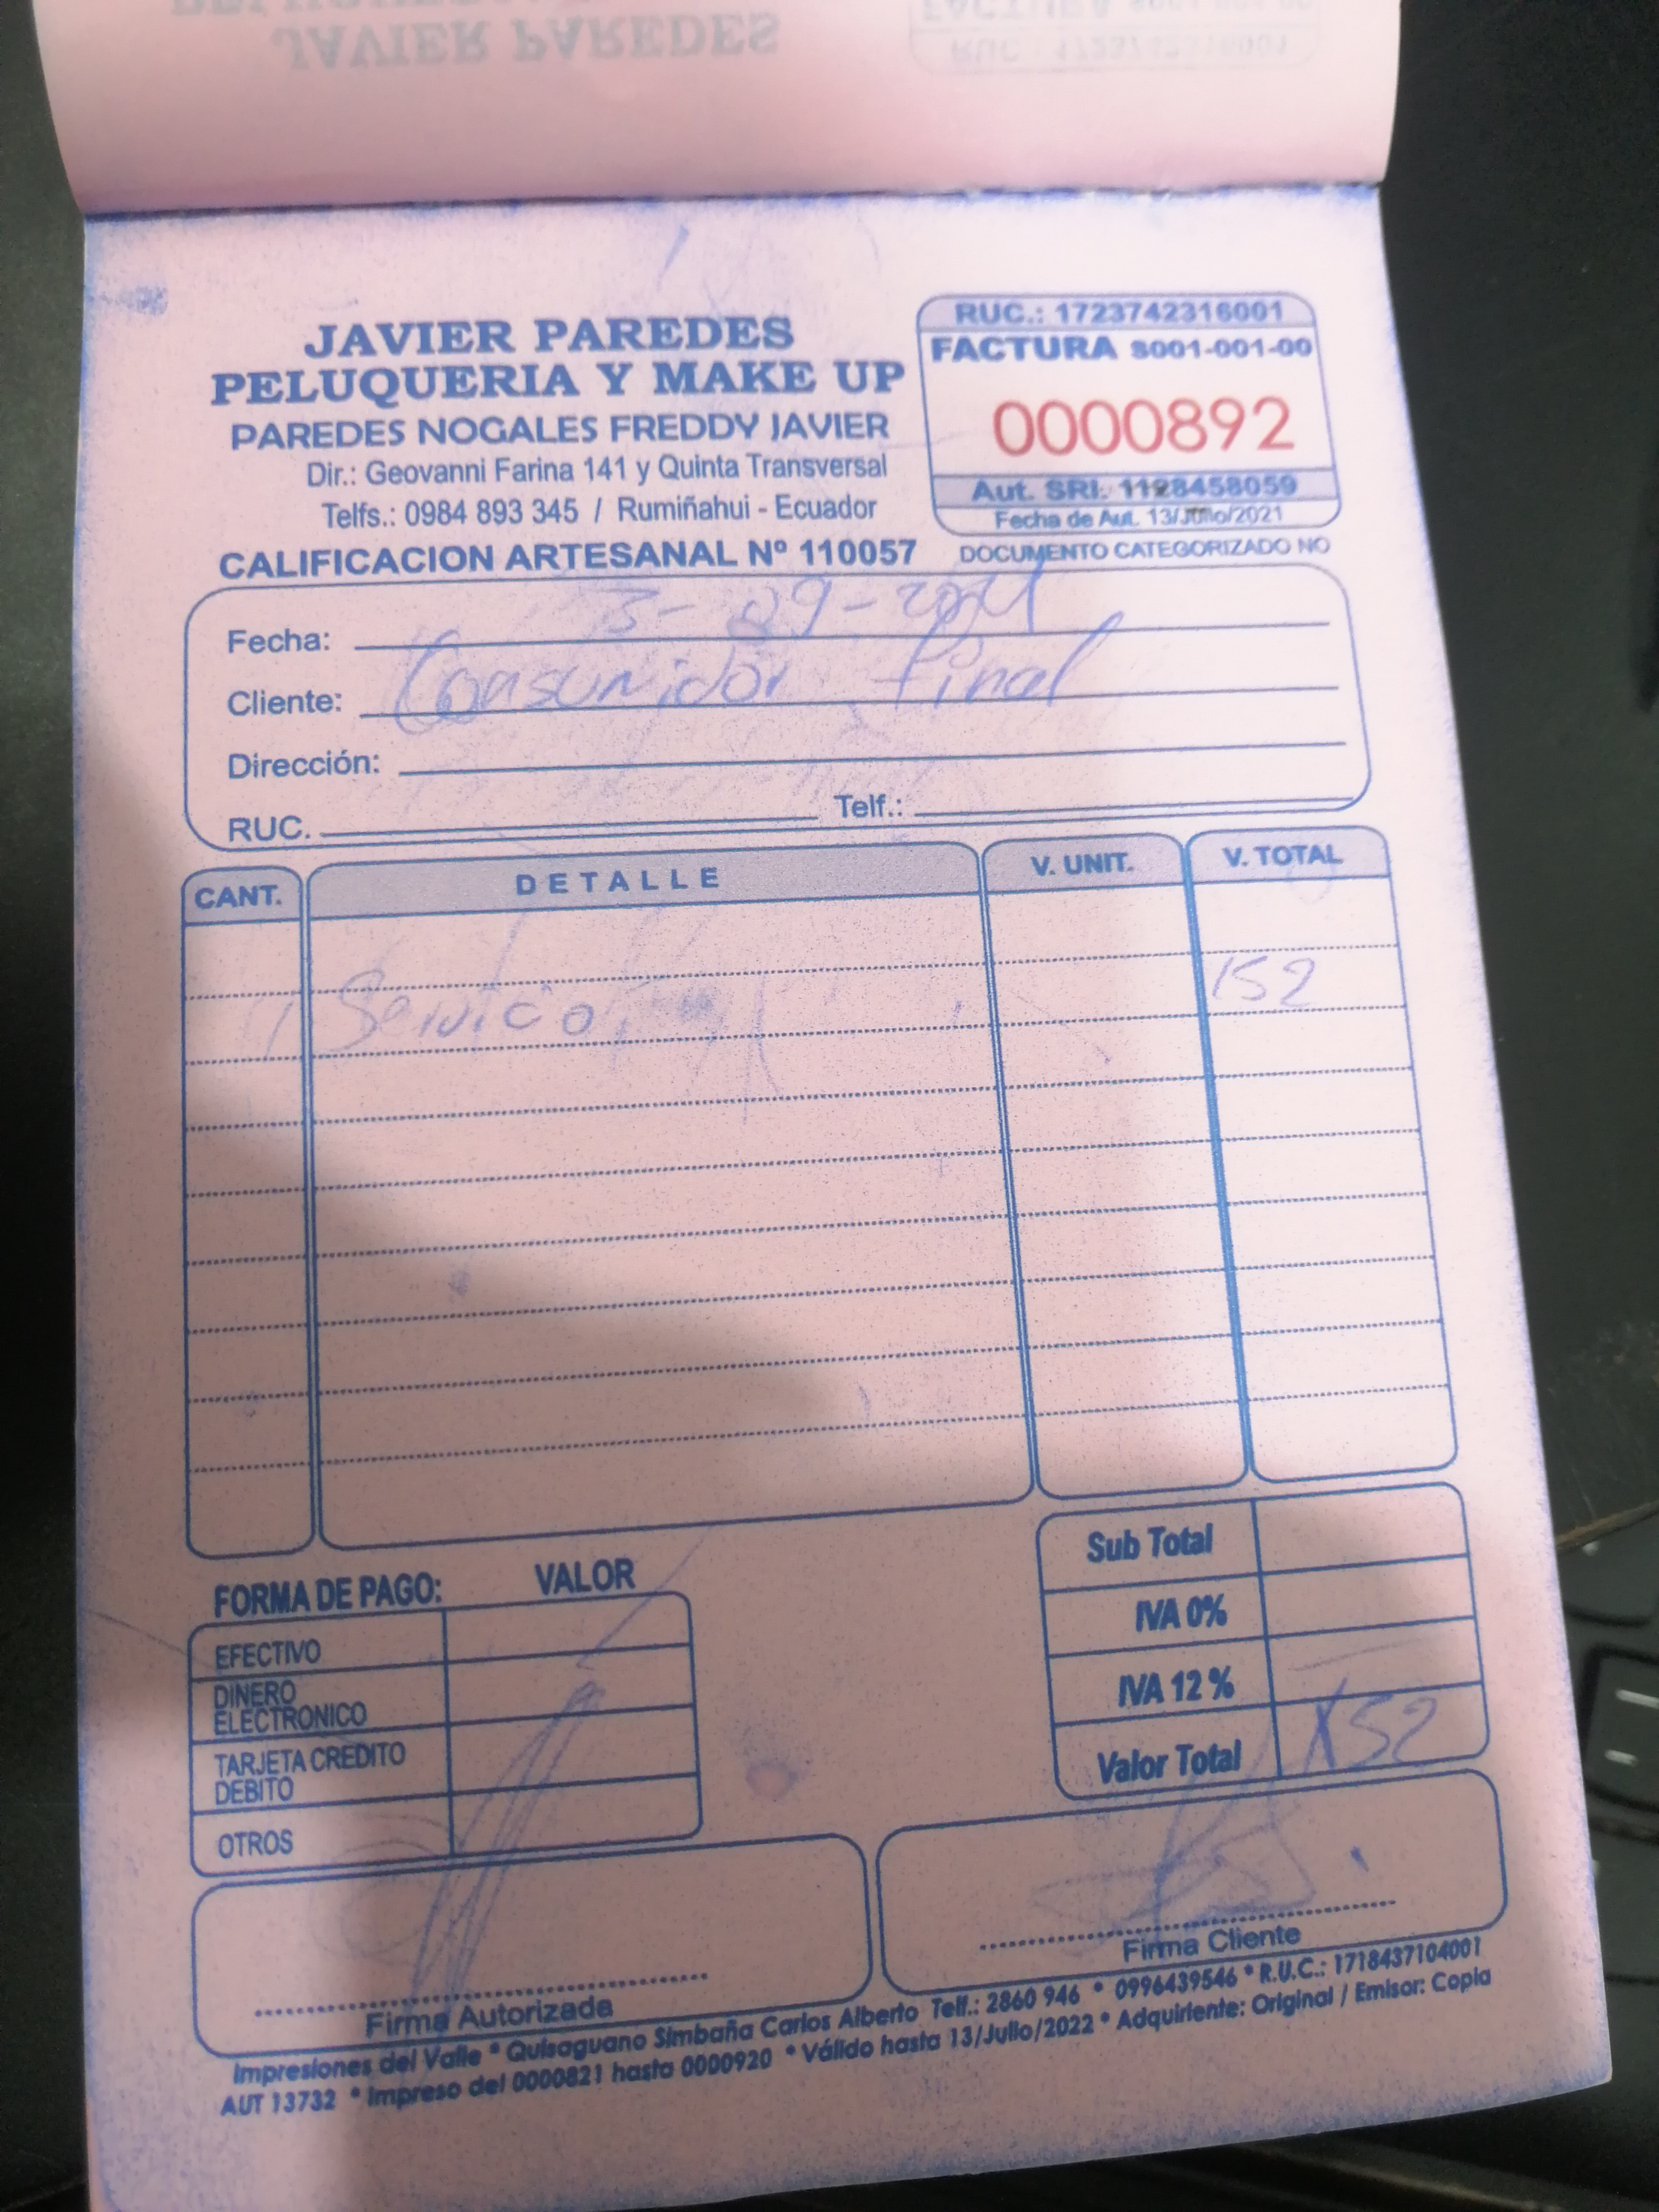 JAVIER PAREDES
PELUQUERIA Y MAKE UP
PAREDES NOGALES FREDDY JAVIER
Dir.: Geovanni Farina 141 y Quinta Transversal
Telfs.: 0984 893 345 / Rumiñahui - Ecuador
CALIFICACION ARTESANAL Nº 110057
RUC.: 1723742316001
FACTURA S001-001-00
0000892
Aut. SRI. 1128458059
Fecha de Aut. 13/Julio/2021
DOCUMENTO CATEGORIZADO NO
Fecha: 3-09-2021
Cliente: Consumidor final
Dirección:
RUC. Telf.:
CANT. DETALLE V. UNIT. V. TOTAL
1 Servicio 152
FORMA DE PAGO: VALOR
EFECTIVO
DINERO
ELECTRONICO
TARJETA CREDITO
DEBITO
OTROS
Sub Total
IVA 0%
IVA 12 %
Valor Total 152
Firma Autorizada
Firma Cliente
Impresiones del Valle * Quisaguano Simbaña Carlos Alberto Telf.: 2860 946 * 0996439546 * R.U.C.: 1718437104001
AUT 13732 * Impreso del 0000821 hasta 0000920 * Válido hasta 13/Julio/2022 * Adquiriente: Original / Emisor: Copia